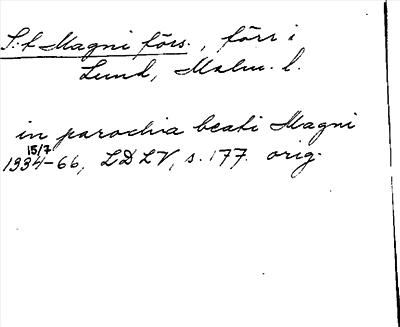 S:t Magni förs., förr i
Lund, Malm. l.
in parochia beati Magni
15/7
1334-66, LDLV, s. 177. orig.